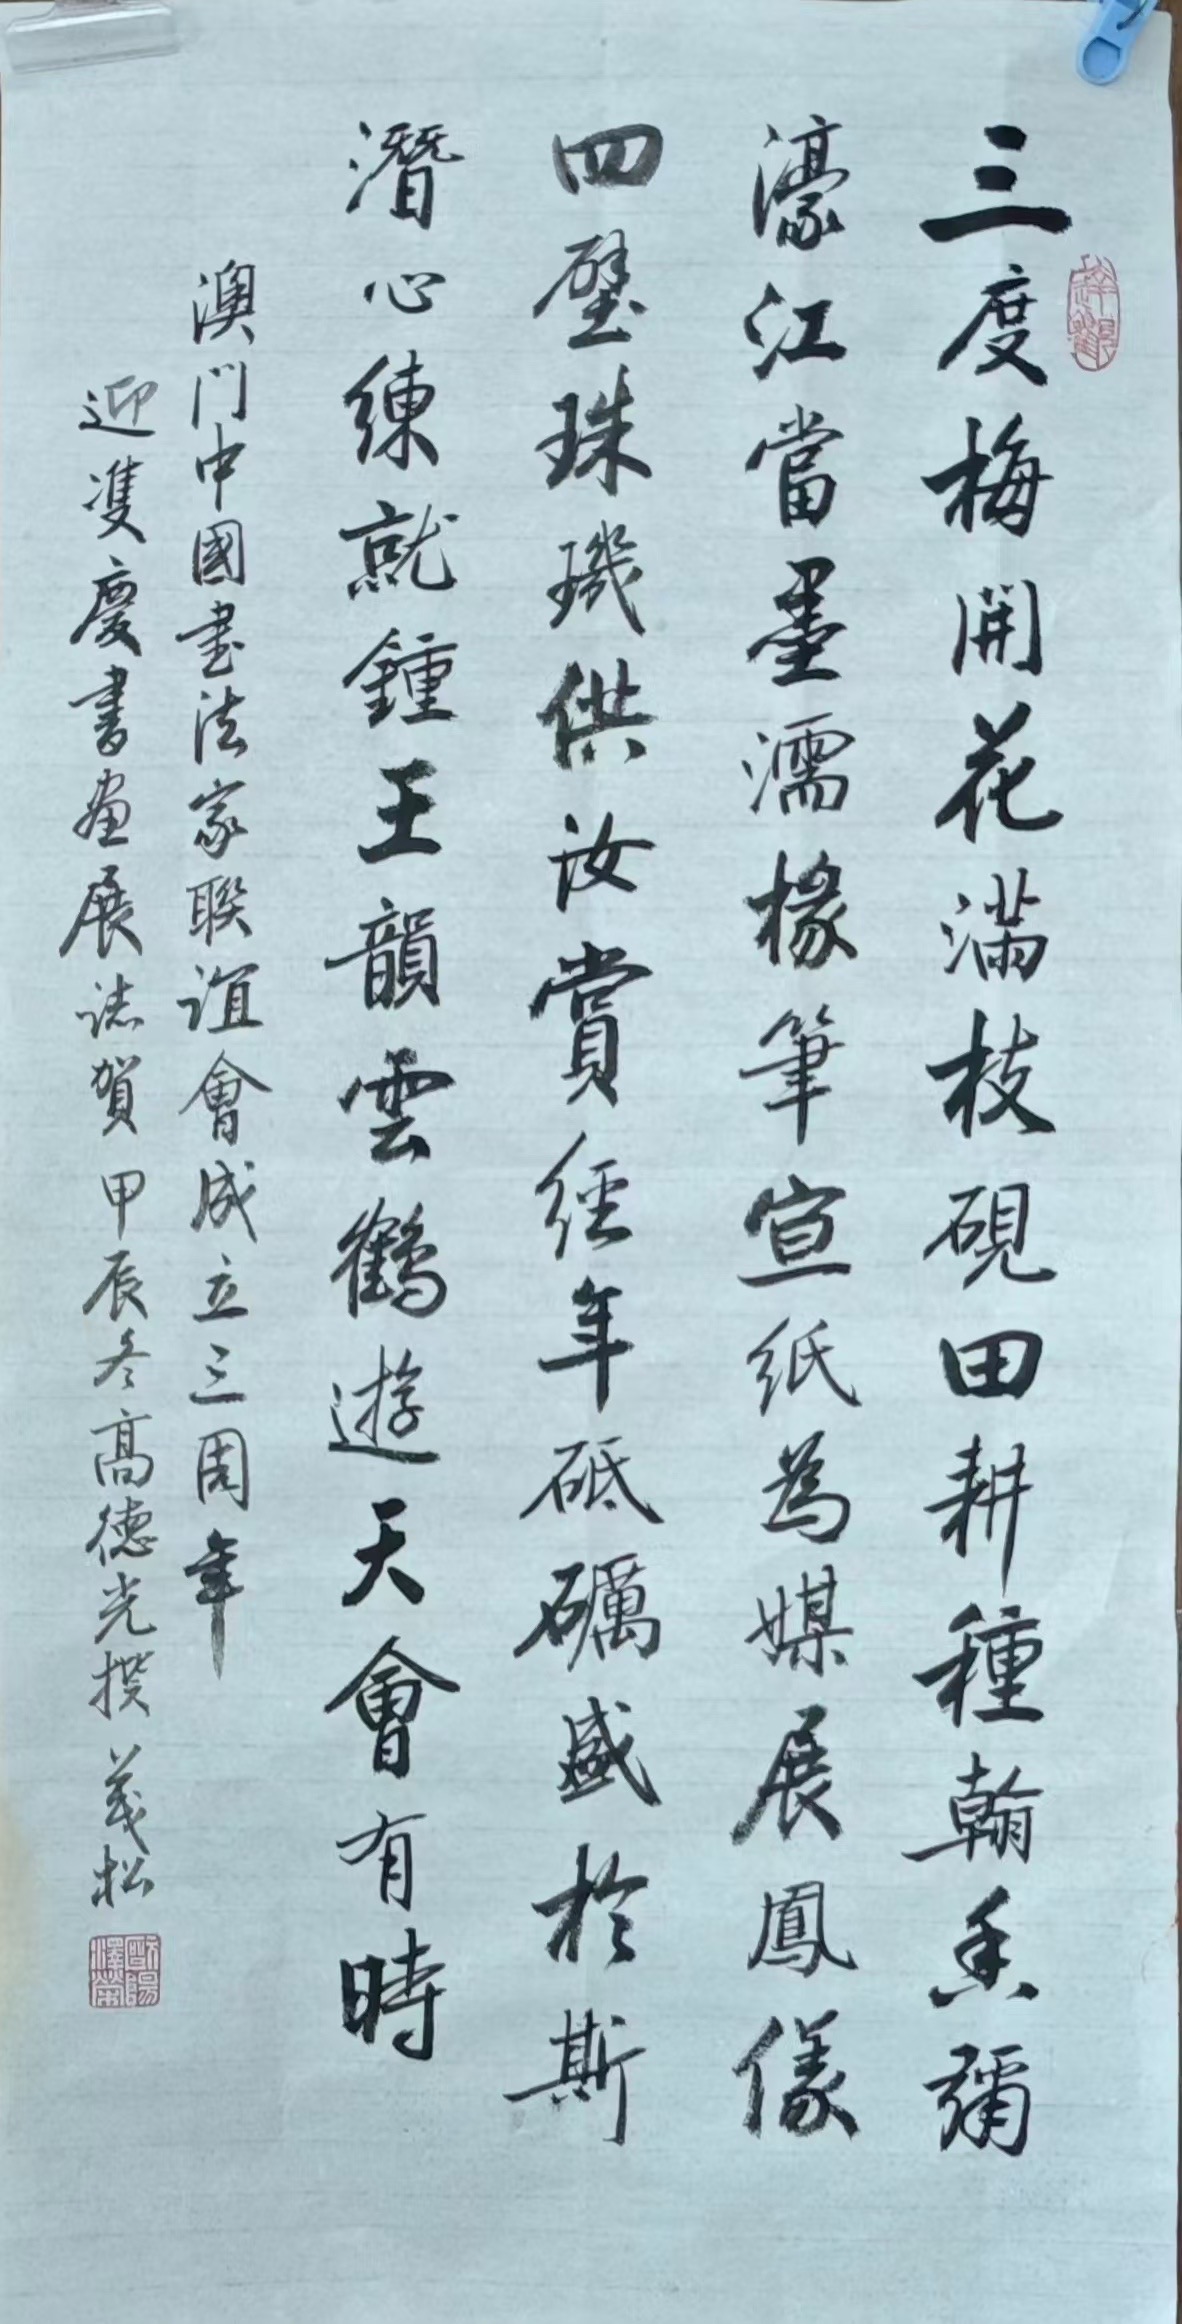 三度梅開花滿枝硯田耕種翰香彌
濠江當墨濡椽筆宣紙為媒展鳳儀
四壁珠璣供汝賞經年砥礪盛於斯
潛心練就鍾王韻雲鶴遊天會有時
澳门中國書法家聯誼會成立三周年
迎雙慶書画展誌賀甲辰冬高德光撰義松
歐陽澤榮